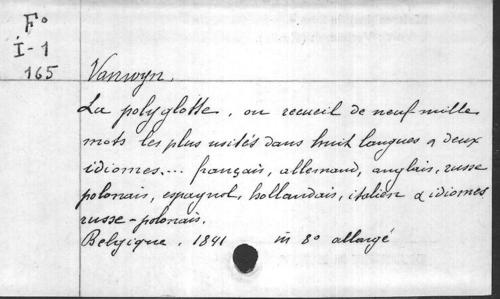 F°
I-1
165
Vanwyn.
La polyglotte, ou recueil de neuf mille
mots les plus usités dans huit langues & deux
idiomes... français, allemand, anglais, russe
polonais, espagnol, hollandais, italien & idiomes
russe-polonais.
Belgique, 1841 in 8° allongé